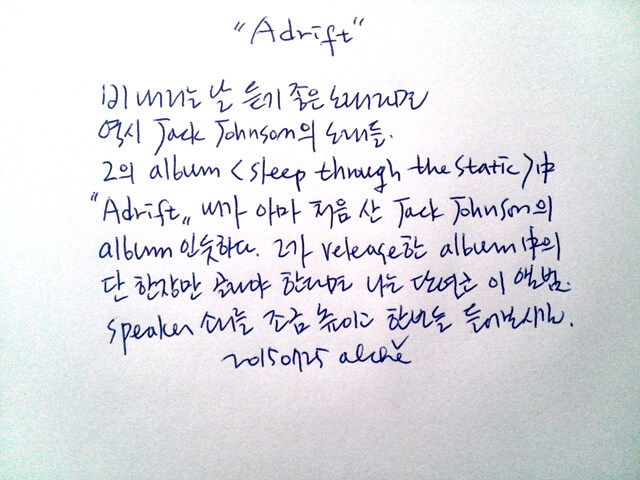 "Adrift"
비 내리는 날 듣기 좋은 노래라면
역시 Jack Johnson의 노래들.
그의 album <sleep through the static>中
"Adrift„ 내가 아마 처음 산 Jack Johnson의
album인듯하다. 그가 release한 album中의
단 한장만 골라야 한다면 나는 단연코 이 앨범.
speaker 소리를 조금 높이고 한번들 들어보시길.
20150725 alchě